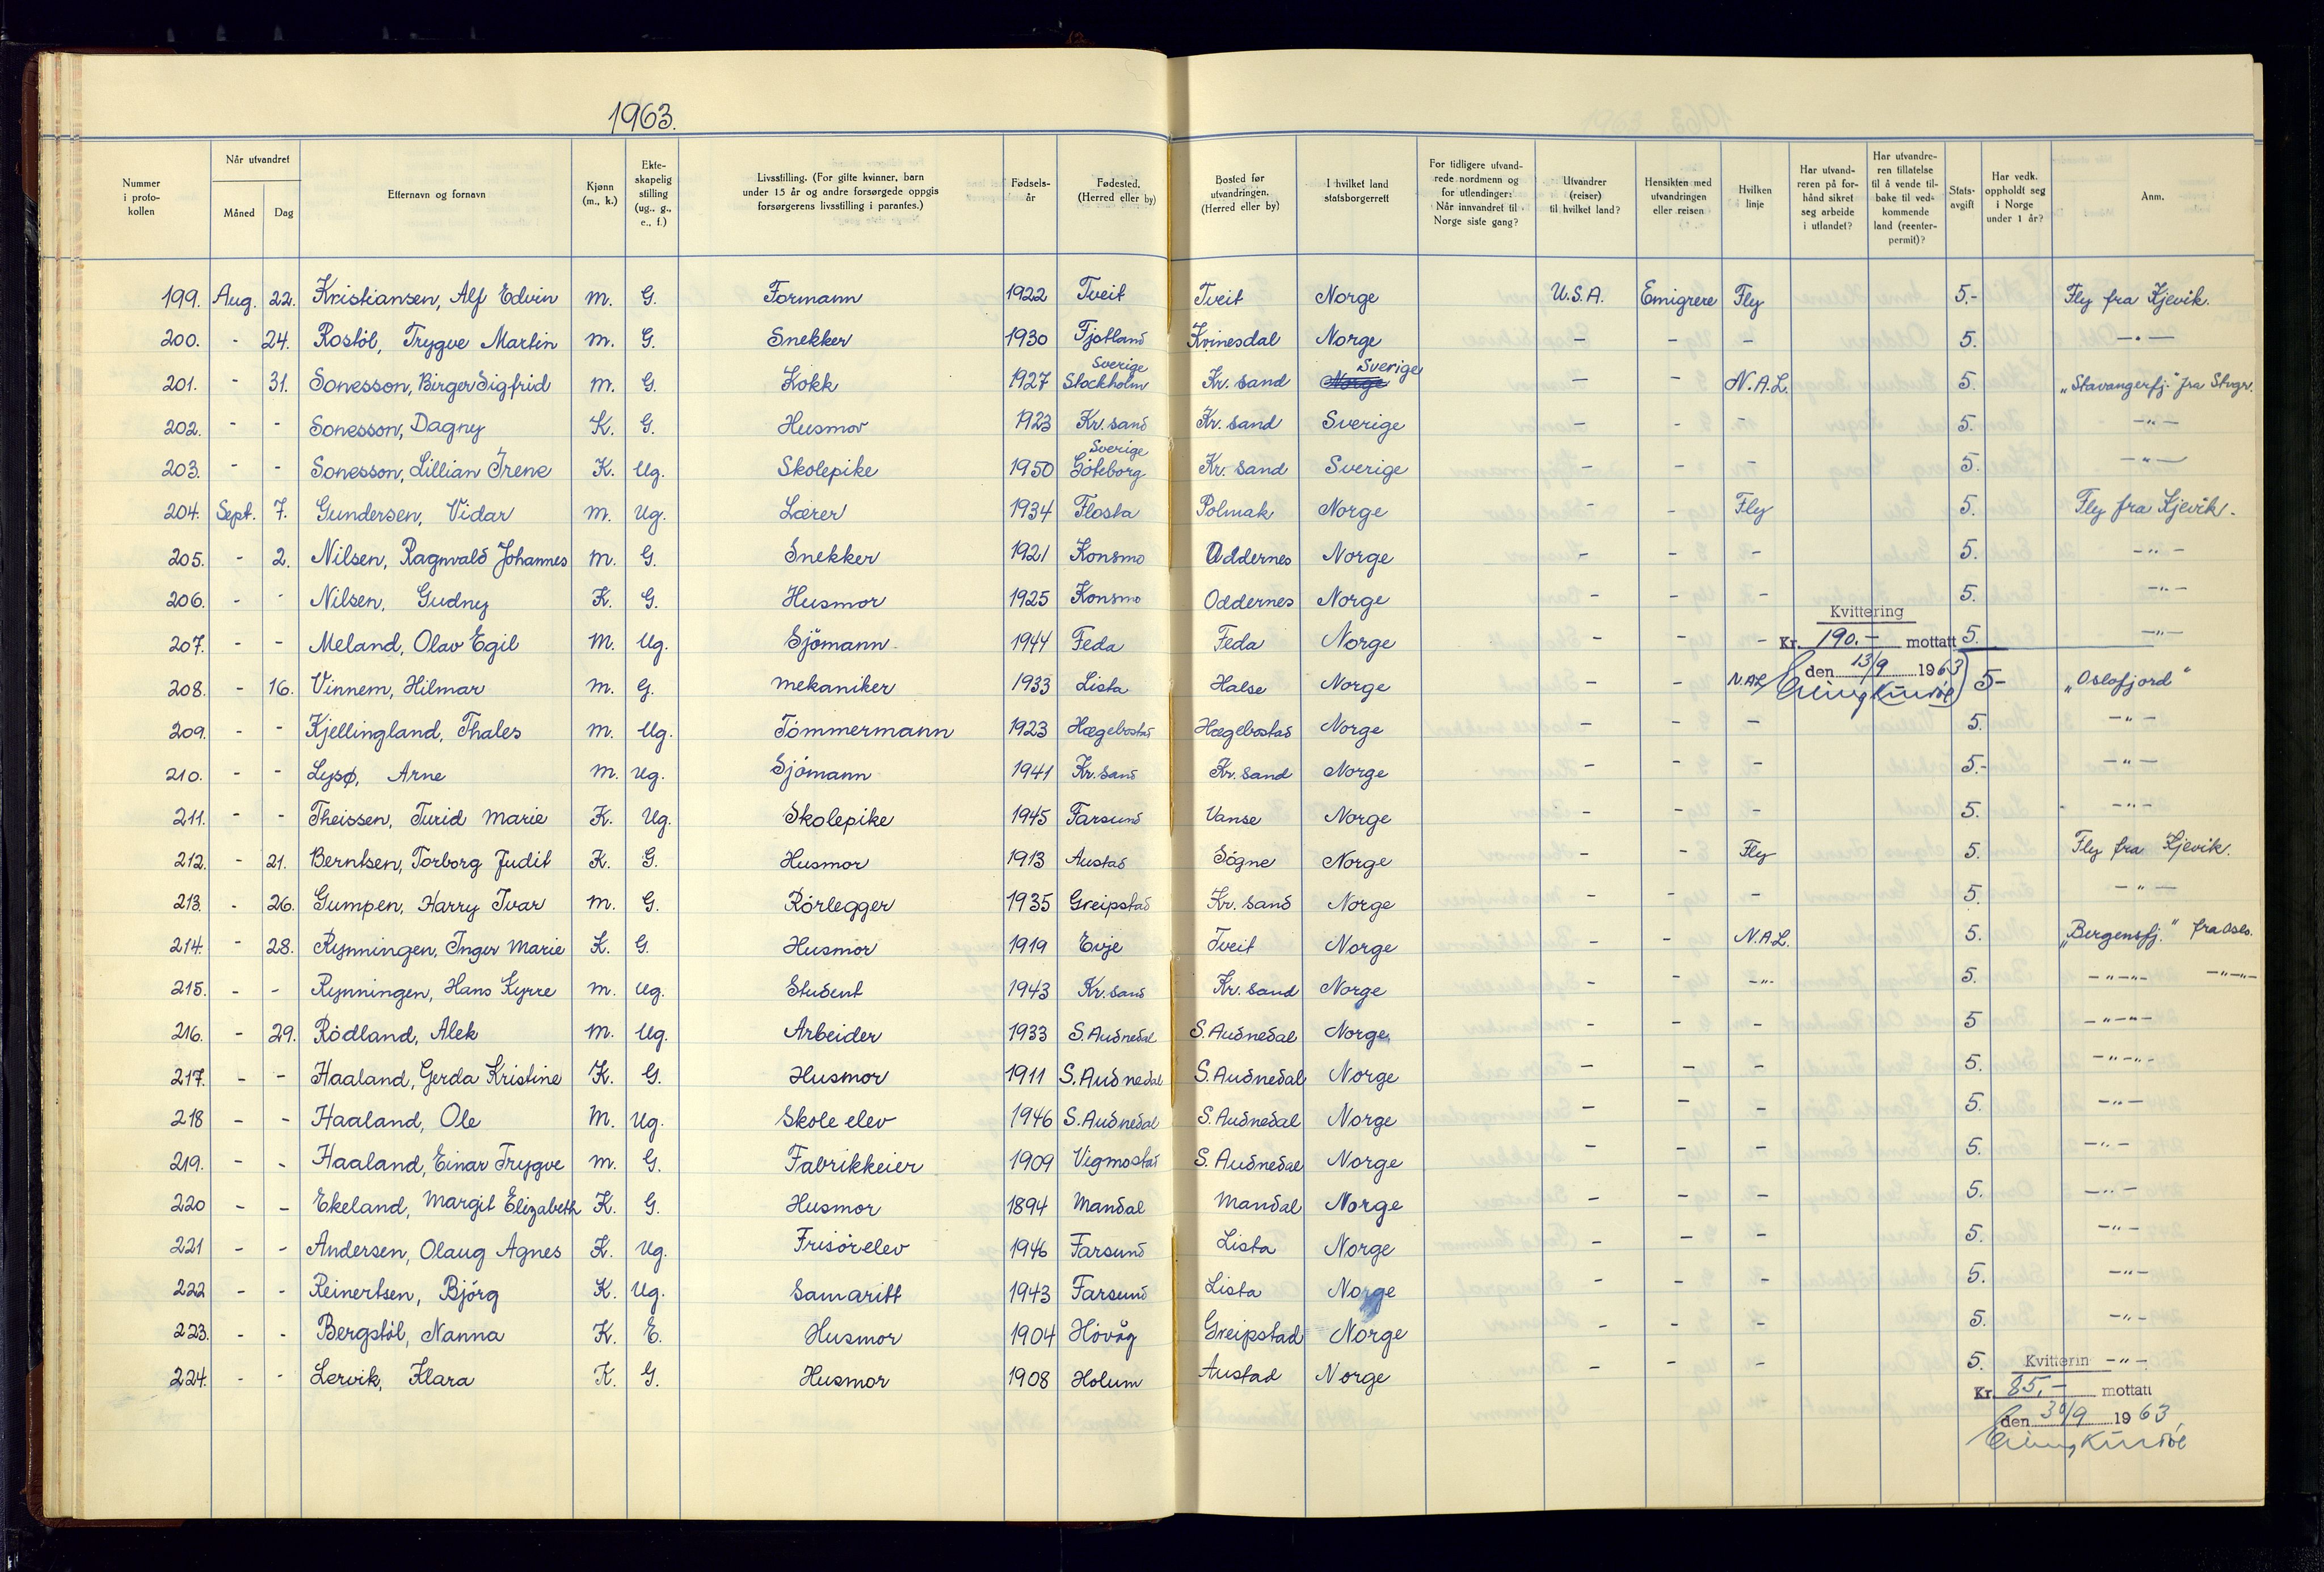 1963.
Nummer i proto-kollen | Når utvandret Måned Dag | Etternavn og fornavn | Kjønn (m., k.) | Ekte-skapelig stilling (ug., g., e., f.) | Livsstilling. (For gifte kvinner, barn under 15 år og andre forsørgede oppgis forsørgerens livsstilling i parantes.) | Fødsels-år | Fødested. (Herred eller by) | Bosted før utvandringen. (Herred eller by) | I hvilket land statsborgerrett | For tidligere utvand-rede nordmenn og for utlendinger: Når innvandret til Norge siste gang? | Utvandrer (reiser) til hvilket land? | Hensikten med utvandringen eller reisen | Hvilken linje | Har utvand-reren på for-hånd sikret seg arbeide i utlandet? | Har utvandre-ren tillatelse til å vende til-bake til ved-kommende land (reenter-permit)? | Stats-avgift | Har vedk. oppholdt seg i Norge under 1 år? | Anm.
199. Aug. 22. Kristiansen, Alf Edvin m. G. Formann 1922 Tveit Tveit Norge U.S.A. Emigrere Fly 5.- Fly fra Kjevik.
200. - 24. Rostöl, Trygve Martin m. G. Snekker 1930 Fjotland Kvinesdal Norge - - - 5. -"-
201. - 31. Sonesson, Birger Sigfrid m. G. Kokk 1927 Sverige Stockholm Kr. sand Norge Sverige - - N.A.L. 5. „Stavangerfj." fra Stvgr.
202. - - Sonesson, Dagny K. G. Husmor 1923 Kr. sand Kr. sand Sverige - - - 5. -"-
203. - - Sonesson, Lillian Irene K. Ug. Skolepike 1950 Sverige Göteborg Kr. sand Sverige - - - 5. -"-
204. Sept. 7. Gundersen, Vidar m. Ug. Lærer 1934 Flosta Polmak Norge - - Fly 5. Fly fra Kjevik.
205. - 2. Nilsen, Ragnvald Johannes m. G. Snekker 1921 Konsmo Oddernes Norge - - - 5. -"-
206. - - Nilsen, Gudny K. G. Husmor 1925 Konsmo Oddernes Norge - - - 5. -"-
Kvittering
207. - - Meland, Olav Egil M. Ug. Sjömann 1944 Feda Feda Norge - - - Kr. 190.- mottatt 5. -"-
den 13/9 1963
208. - 16. Vinnem, Hilmar m. G. mekaniker 1933 Lista Halse Norge - - N.A.L 5- „Oslofjord"
209. - - Kjellingland, Thales m. Ug. Tömmermann 1923 Hægebostad Hægebostad Norge - - - 5. -"-
210. - - Lysø, Arne m. Ug. Sjömann 1941 Kr. sand Kr. sand Norge - - - 5.- -"-
211. - - Theissen, Turid Marie K. Ug. Skolepike 1945 Farsund Vanse Norge - - - 5. -"-
212. - 21. Berntsen, Torborg Judit K. G. Husmor 1913 Austad Sögne Norge - - Fly 5. Fly fra Kjevik.
213. - 26. Gumpen, Harry Ivar m. G. Rörlegger 1935 Greipstad Kr. sand Norge - - - 5. -"-
214. - 28. Rynningen, Inger Marie K. G. Husmor 1919 Evje Tveit Norge - - N.A.L. 5. „Bergensfj." fra Oslo.
215. - - Rynningen, Hans Kyrre m. Ug. Student 1943 Kr. sand Kr. sand Norge - - -"- 5. -"-"- -"-"-
216. - 29. Rödland, Alek m. Ug. Arbeider 1933 S. Audnedal S. Audnedal Norge - - - 5 -"-"-
217. - - Haaland, Gerda Kristine K. G. Husmor 1911 S. Audnedal S. Audnedal Norge - - - 5. -"-"-
218 - - Haaland, Ole M. Ug. Skole elev 1946 S. Audnedal S. Audnedal Norge - - - 5. -"-
219. - - Haaland, Einar Trygve m. G. Fabrikkeier 1909 Vigmostad S. Audnedal Norge - - - 5. -"-
220 - - Ekeland, Margit Elizabeth K. G. Husmor 1894 Mandal Mandal Norge - - - 5. -"-
221 - - Andersen, Olaug Agnes K. Ug. Frisörelev 1946 Farsund Lista Norge - - - 5. -"-
222 - - Reinertsen, Björg K. Ug. Samaritt 1943 Farsund Lista Norge - - - 5. -"-
223. - - Bergstöl, Nanna K. E. Husmor 1904 Hövåg Greipstad Norge - - - 5. -"-
224. - - Lervik, Klara K. G. Husmor 1908 Holum Austad Norge - - - 5. Kvitterin -"-
Kr. 85,- mottatt
den 30/9 1963